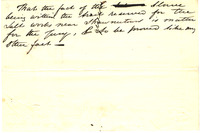 That the fact of the Slave
being within the tract reserved for the
Salt works near Shawneetown is matter
for the Jury & to be proved like any
other fact —